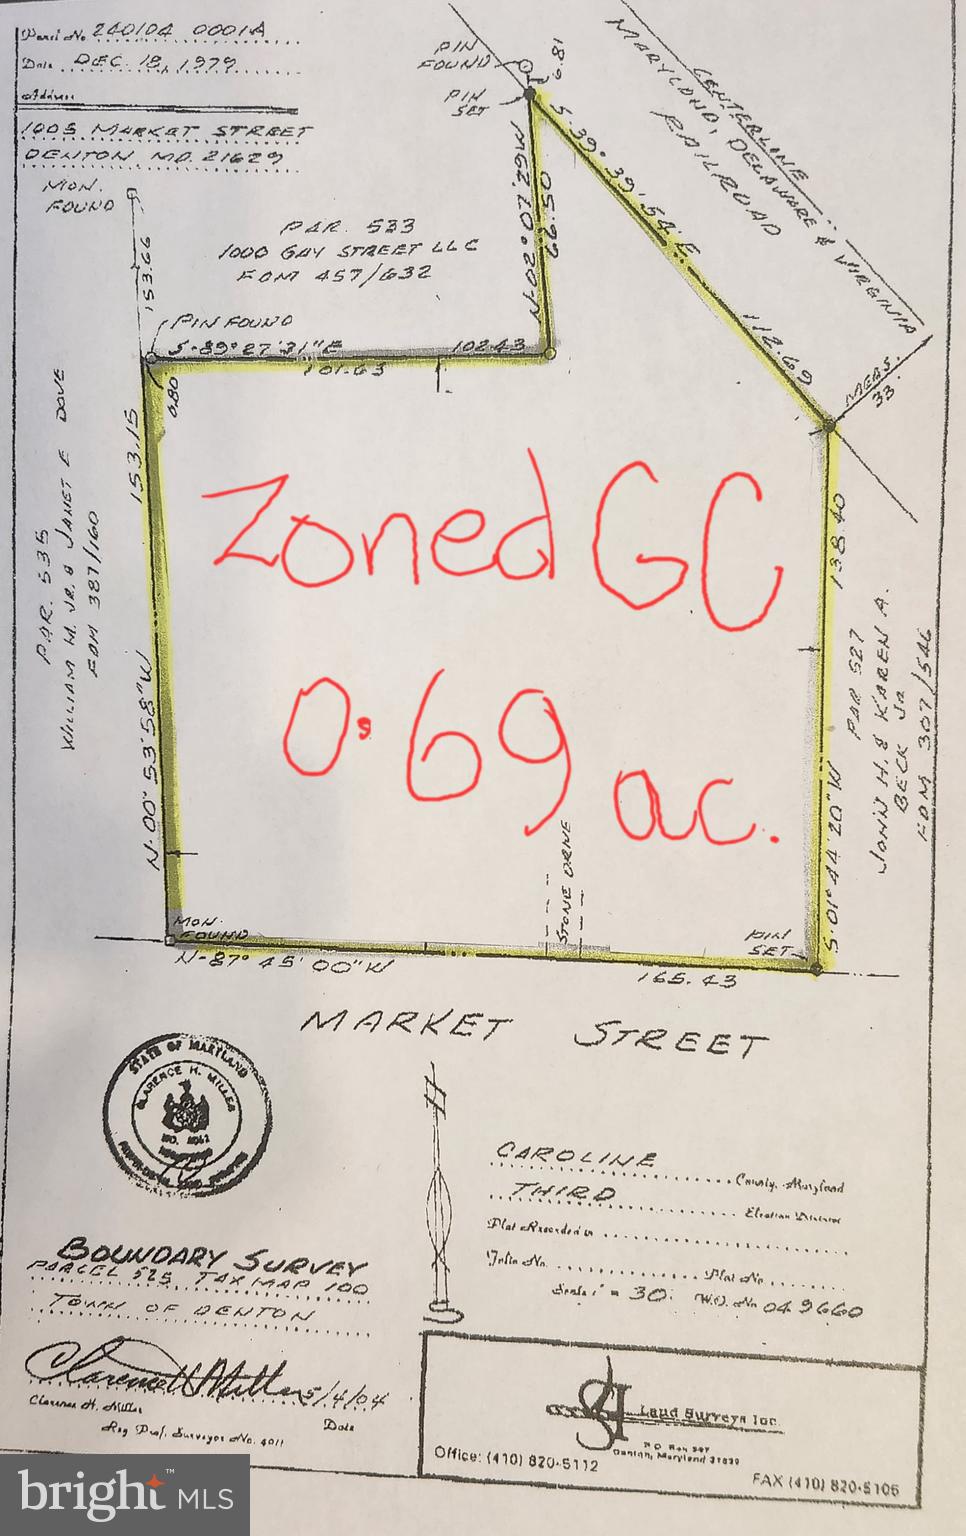 Panel No 240104 0001A
Date DEC. 18, 1979
Address
1005 MARKET STREET
DENTON MD. 21629
MON.
FOUND
153.66
PAR. 533
1000 GAY STREET LLC
FDM 457/632
PIN
FOUND
6.81
PIN
SET
N-02°07'26"W
66.50
S-39°39'54"E
112.69
CENTERLINE
MARYLAND, DELAWARE & VIRGINIA
RAILROAD
MEAS.
33
PIN FOUND
S-89°27'31"E
102.43
101.63
0.80
153.15
N-00°53'58"W
PAR. 535
WILLIAM M. JR. & JANET E DOVE
FDM 387/160
Zoned GC
0.69 ac.
138.40
S-01°44'20"W
PAR 527
JOHN H. & KAREN A.
BECK JR
FDM 307/546
STONE DRIVE
MON.
FOUND
PIN
SET
N-87°45'00"W
165.43
MARKET STREET
STATE OF MARYLAND
CLARENCE H. MILLER
CAROLINE County, Maryland
THIRD Election District
Plat Recorded in
Folio No. Plat No.
Scale 1" = 30' W.O. No 049660
BOUNDARY SURVEY
PARCEL 525 TAX MAP 100
TOWN OF DENTON
Clarence H. Miller 5/4/04
Clarence H. Miller Date
Reg Prof. Surveyor No. 4011
Land Surveys Inc.
Denton, Maryland 21629
Office: (410) 820-5112
FAX (410) 820-5106
bright MLS